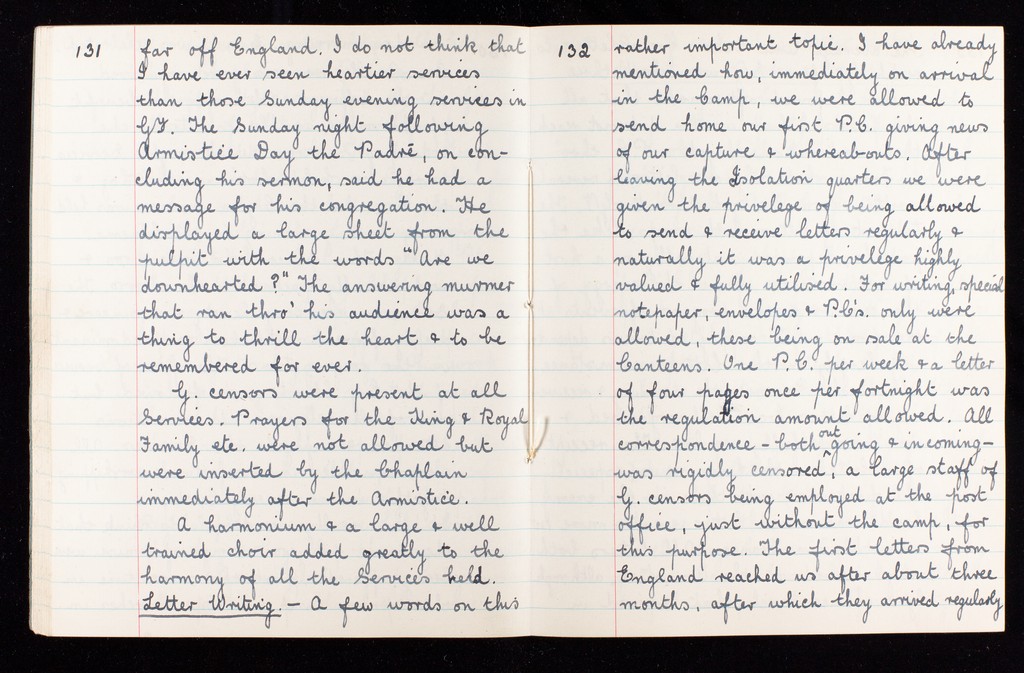 131
far off England. I do not think that
I have ever seen heartier services
than those Sunday evening services in
G.F. The Sunday night following
Armistice Day the Padré, on con-
cluding his sermon, said he had a
message for his congregation. He
displayed a large sheet from the
pulpit with the words "Are we
downhearted?" The answering murmer
that ran thro' his audience was a
thing to thrill the heart & to be
remembered for ever.
G. censors were present at all
Services. Prayers for the King & Royal
Family etc. were not allowed but
were inserted by the Chaplain
immediately after the Armistice.
A harmonium & a large & well
trained choir added greatly to the
harmony of all the Services held.
Letter Writing. — A few words on this
132
rather important topic. I have already
mentioned how, immediately on arrival
in the Camp, we were allowed to
send home our first P.C. giving news
of our capture & whereabouts. After
leaving the Isolation quarters we were
given the privelege of being allowed
to send & receive letters regularly &
naturally it was a privelege highly
valued & fully utilised. For writing, special
notepaper, envelopes & P.C's. only were
allowed, these being on sale at the
Canteens. One P.C. per week & a letter
of four pages once per fortnight was
the regulation amount allowed. All
correspondence - both outgoing & incoming -
was rigidly censored, a large staff of
G. censors being employed at the post
office, just without the camp, for
this purpose. The first letters from
England reached us after about three
months, after which they arrived regularly